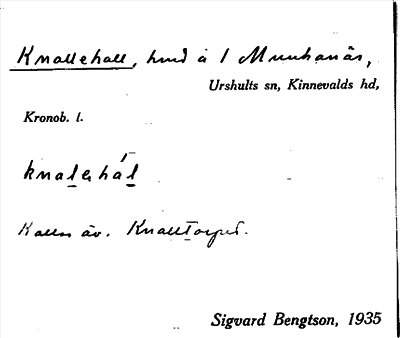 Knallehall, hmd å 1 Munkanäs,
Urshults sn, Kinnevalds hd,
Kronob. l.
knalehál
Kallas äv. Knalltorpet.
Sigvard Bengtson, 1935